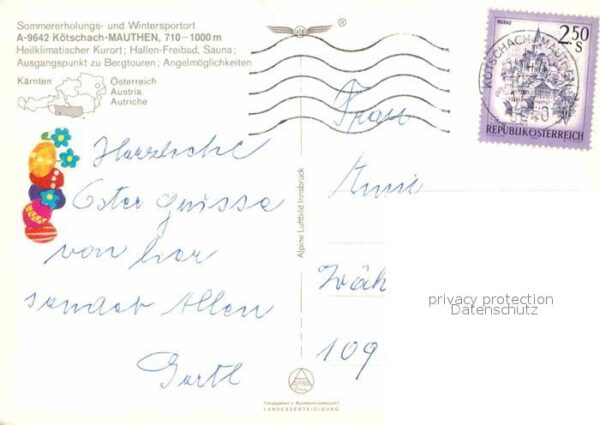 Sommererholungs- und Wintersportort
A-9642 Kötschach-MAUTHEN, 710–1000 m
Heilklimatischer Kurort; Hallen-Freibad, Sauna;
Ausgangspunkt zu Bergtouren; Angelmöglichkeiten
Kärnten
Österreich
Austria
Autriche
®
MURAU
2.50
S
REPUBLIK ÖSTERREICH
KÖTSCHACH-MAUTHEN
Herzliche
Ostergrüsse
von hier
sendet Allen
Gartl
Alpine Luftbild Innsbruck
Freigegeben v. Bundesministerium f.
LANDESVERTEIDIGUNG
Frau
Anni
109
privacy protection
Datenschutz